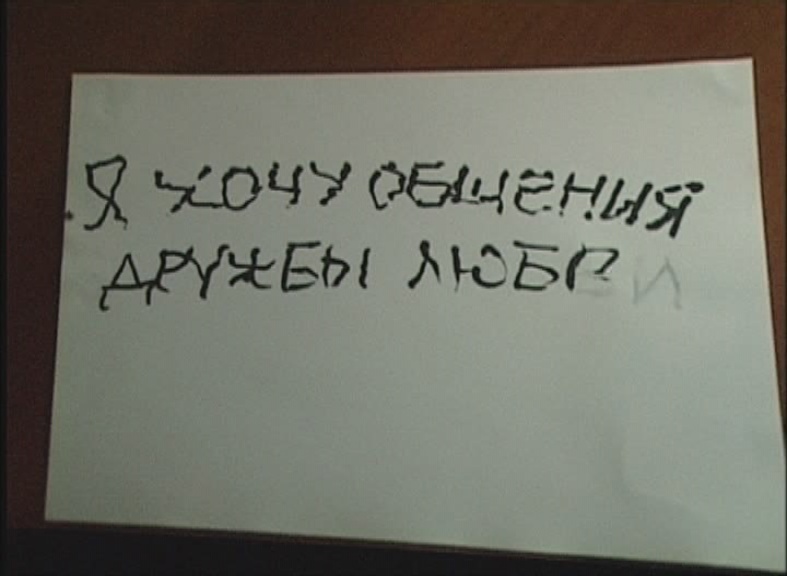 Я ХОЧУ ОБЩЕНИЯ
ДРУЖБЫ ЛЮБВИ